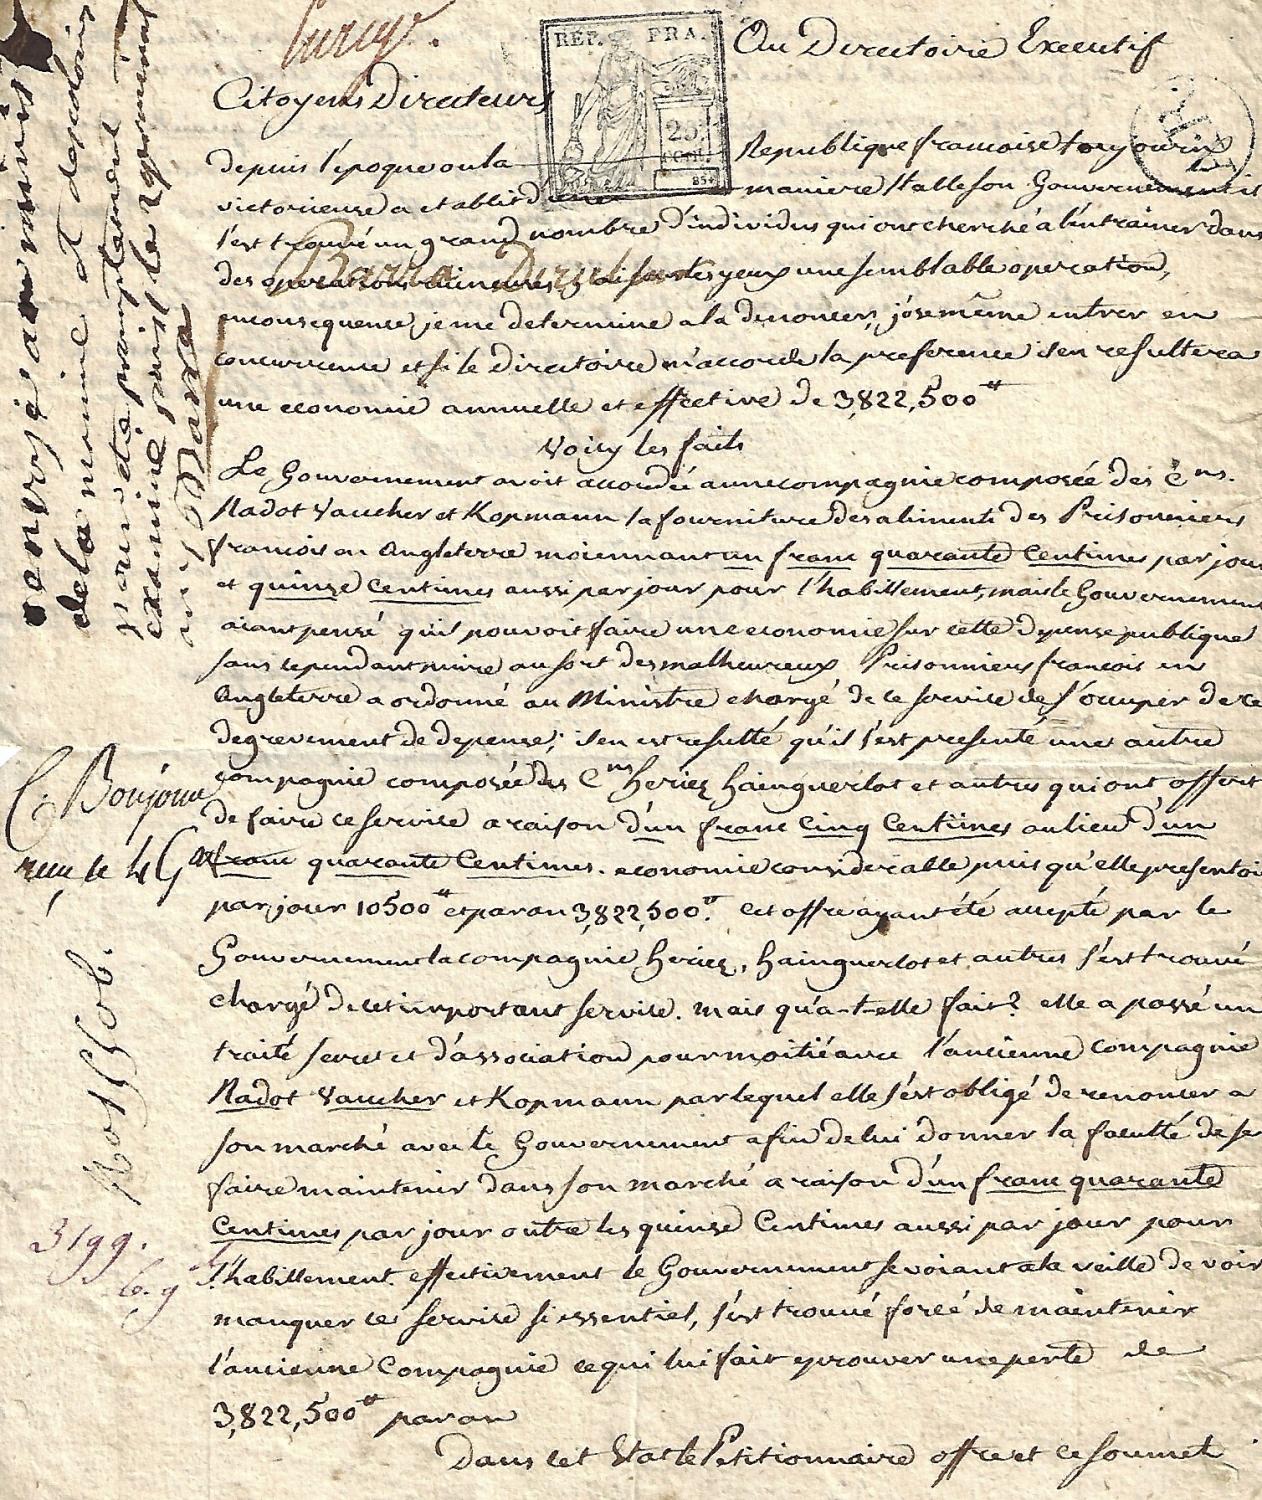 Au Directoire Executif
Citoyens Directeurs
REP. FRA.
25
cent.
depuis l'epoque ou la Republique francoise toujours
victorieuse a etablit d'une maniere stalle son Gouvernement il
s'est trouvé un grand nombre d'individus qui ont cherché à l'entrainer dans
des operations yeux une semblable operation,
enconsequence je me determine a la denoncer, j'ose même entrer en
concurrence et si le Directoire m'accorde la preference il en resultera
une economie annuelle et effective de 3,822,500tt
Voicy les faits
Le Gouvernement avoit accordé a une compagnie composée des Cens.
Nadot Vaucher et Kopmann la fourniture des aliments des Prisonniers
francois en Angleterre moiennant un franc quarante Centimes par jour
et quinze Centimes aussi par jour pour l'habillement, mais le Gouvernement
aiant pensé qu'il pouvoit faire une economie sur cette depense publique
sans cependant nuire au sort des malheureux Prisonniers francois en
Angleterre a ordonné au Ministre chargé de ce service de s'occuper de ce
degrevement de depense; il en est resulté qu'il s'est presenté une autre
compagnie composée des Cens heriez hainguerlot et autres qui ont offert
de faire ce service a raison d'un franc Cinq Centimes au lieu d'un
franc quarante Centimes. economie considerable puis qu'elle presentoit
par jour 10500tt et par an 3,822,500tt. Cet offre ayant été accepté par le
Gouvernement la compagnie heriez, hainguerlot et autres s'est trouvé
chargé de cet important service. mais qu'a-t-elle fait? elle a passé un
traité secret et d'association pour moitié avec l'ancienne compagnie
Nadot Vaucher et Kopmann par lequel elle s'est obligé de renoncer a
son marché avec le Gouvernement afin de lui donner la faculté de se
faire maintenir dans son marché a raison d'un franc quarante
Centimes par jour outre les quinze Centimes aussi par jour pour
l'habillement. effectivement le Gouvernement se voiant a la veille de voir
manquer ce service si essentiel, s'est trouvé forcé de maintenir
l'ancienne Compagnie ce qui lui fait eprouver une perte de
3,822,500tt par an
Dans cet Etat le Petitionnaire offre et ce soumet
renvoyé au ministre
de la marine
pour être promptement
examiné paris le 29 germinal
an 6
C. Bonjour
3199.